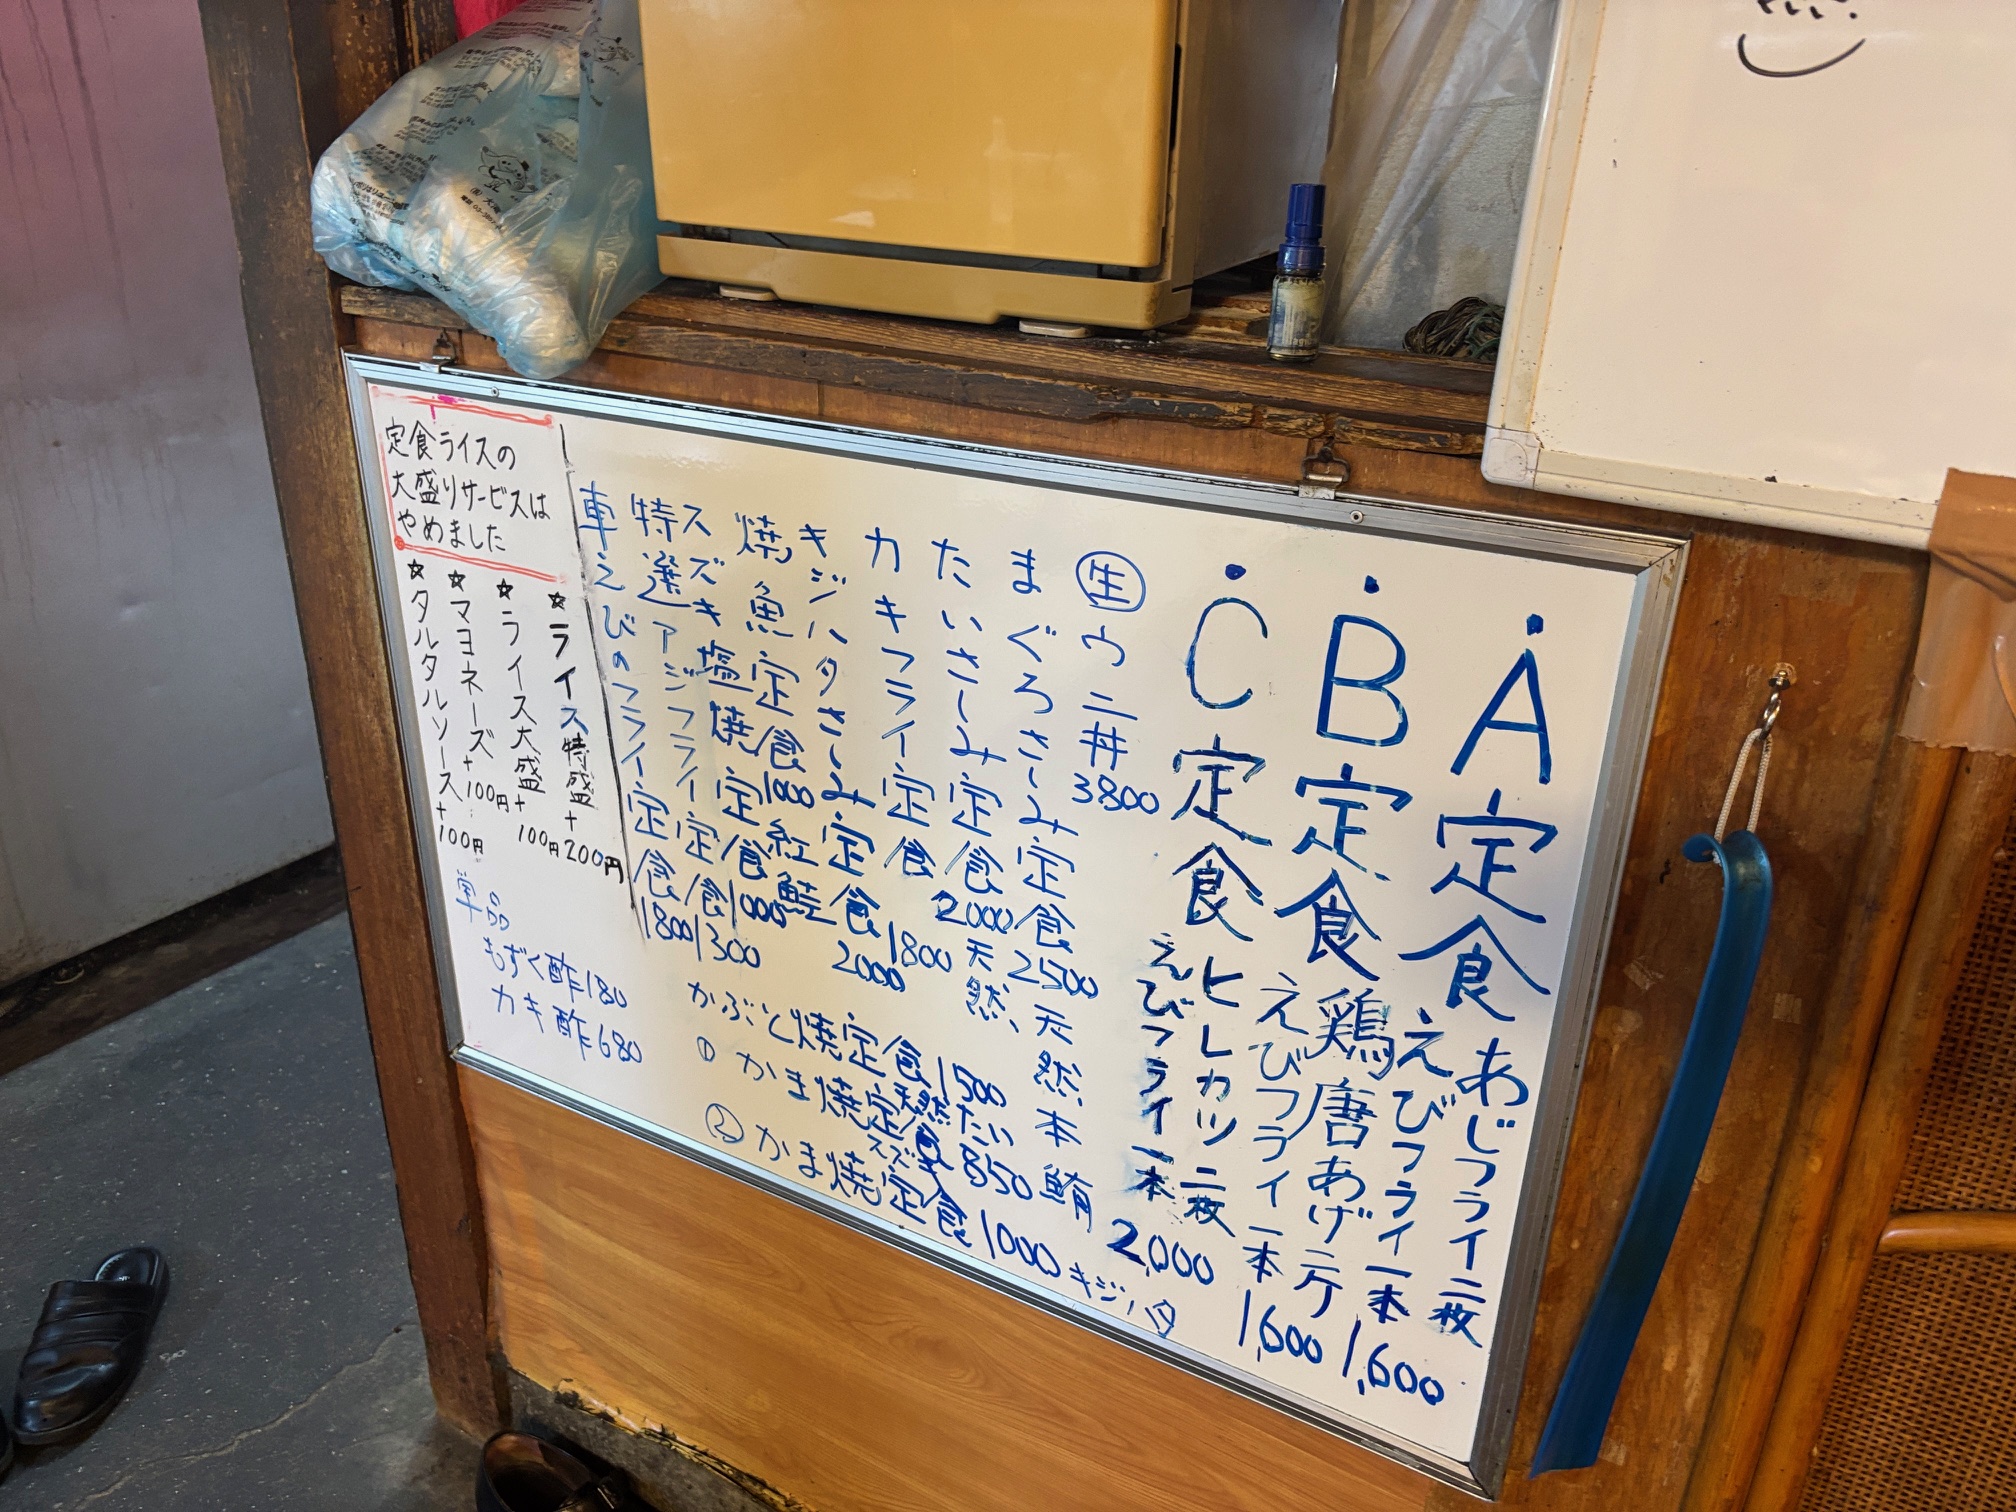 A定食 あじフライ二枚
えびフライ一本 1,600
B定食 鶏唐あげ二ケ
えびフライ一本 1,600
C定食 ヒレカツ二枚
えびフライ一本 2,000
生ウニ丼3800
まぐろさしみ定食2500 天然本鮪
たいさしみ定食2000 天然
カキフライ定食1800
キジハタさしみ定食2000
焼魚定食1000 紅鮭
スズキ塩焼定食1000
特選アジフライ定食1300
車えびのフライ定食1800
かぶと焼定食1500 天然たい
①かま焼定食850 スズキ
②かま焼定食1000 キジハタ
定食ライスの
大盛りサービスは
やめました
☆ライス特盛+200円
☆ライス大盛+100円
☆マヨネーズ+100円
☆タルタルソース+100円
単品
もずく酢180
カキ酢680